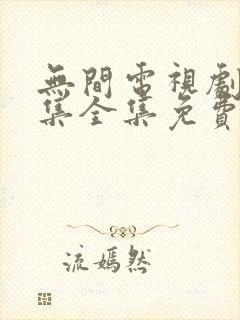 無間電視劇
集全集免費
流嫣然